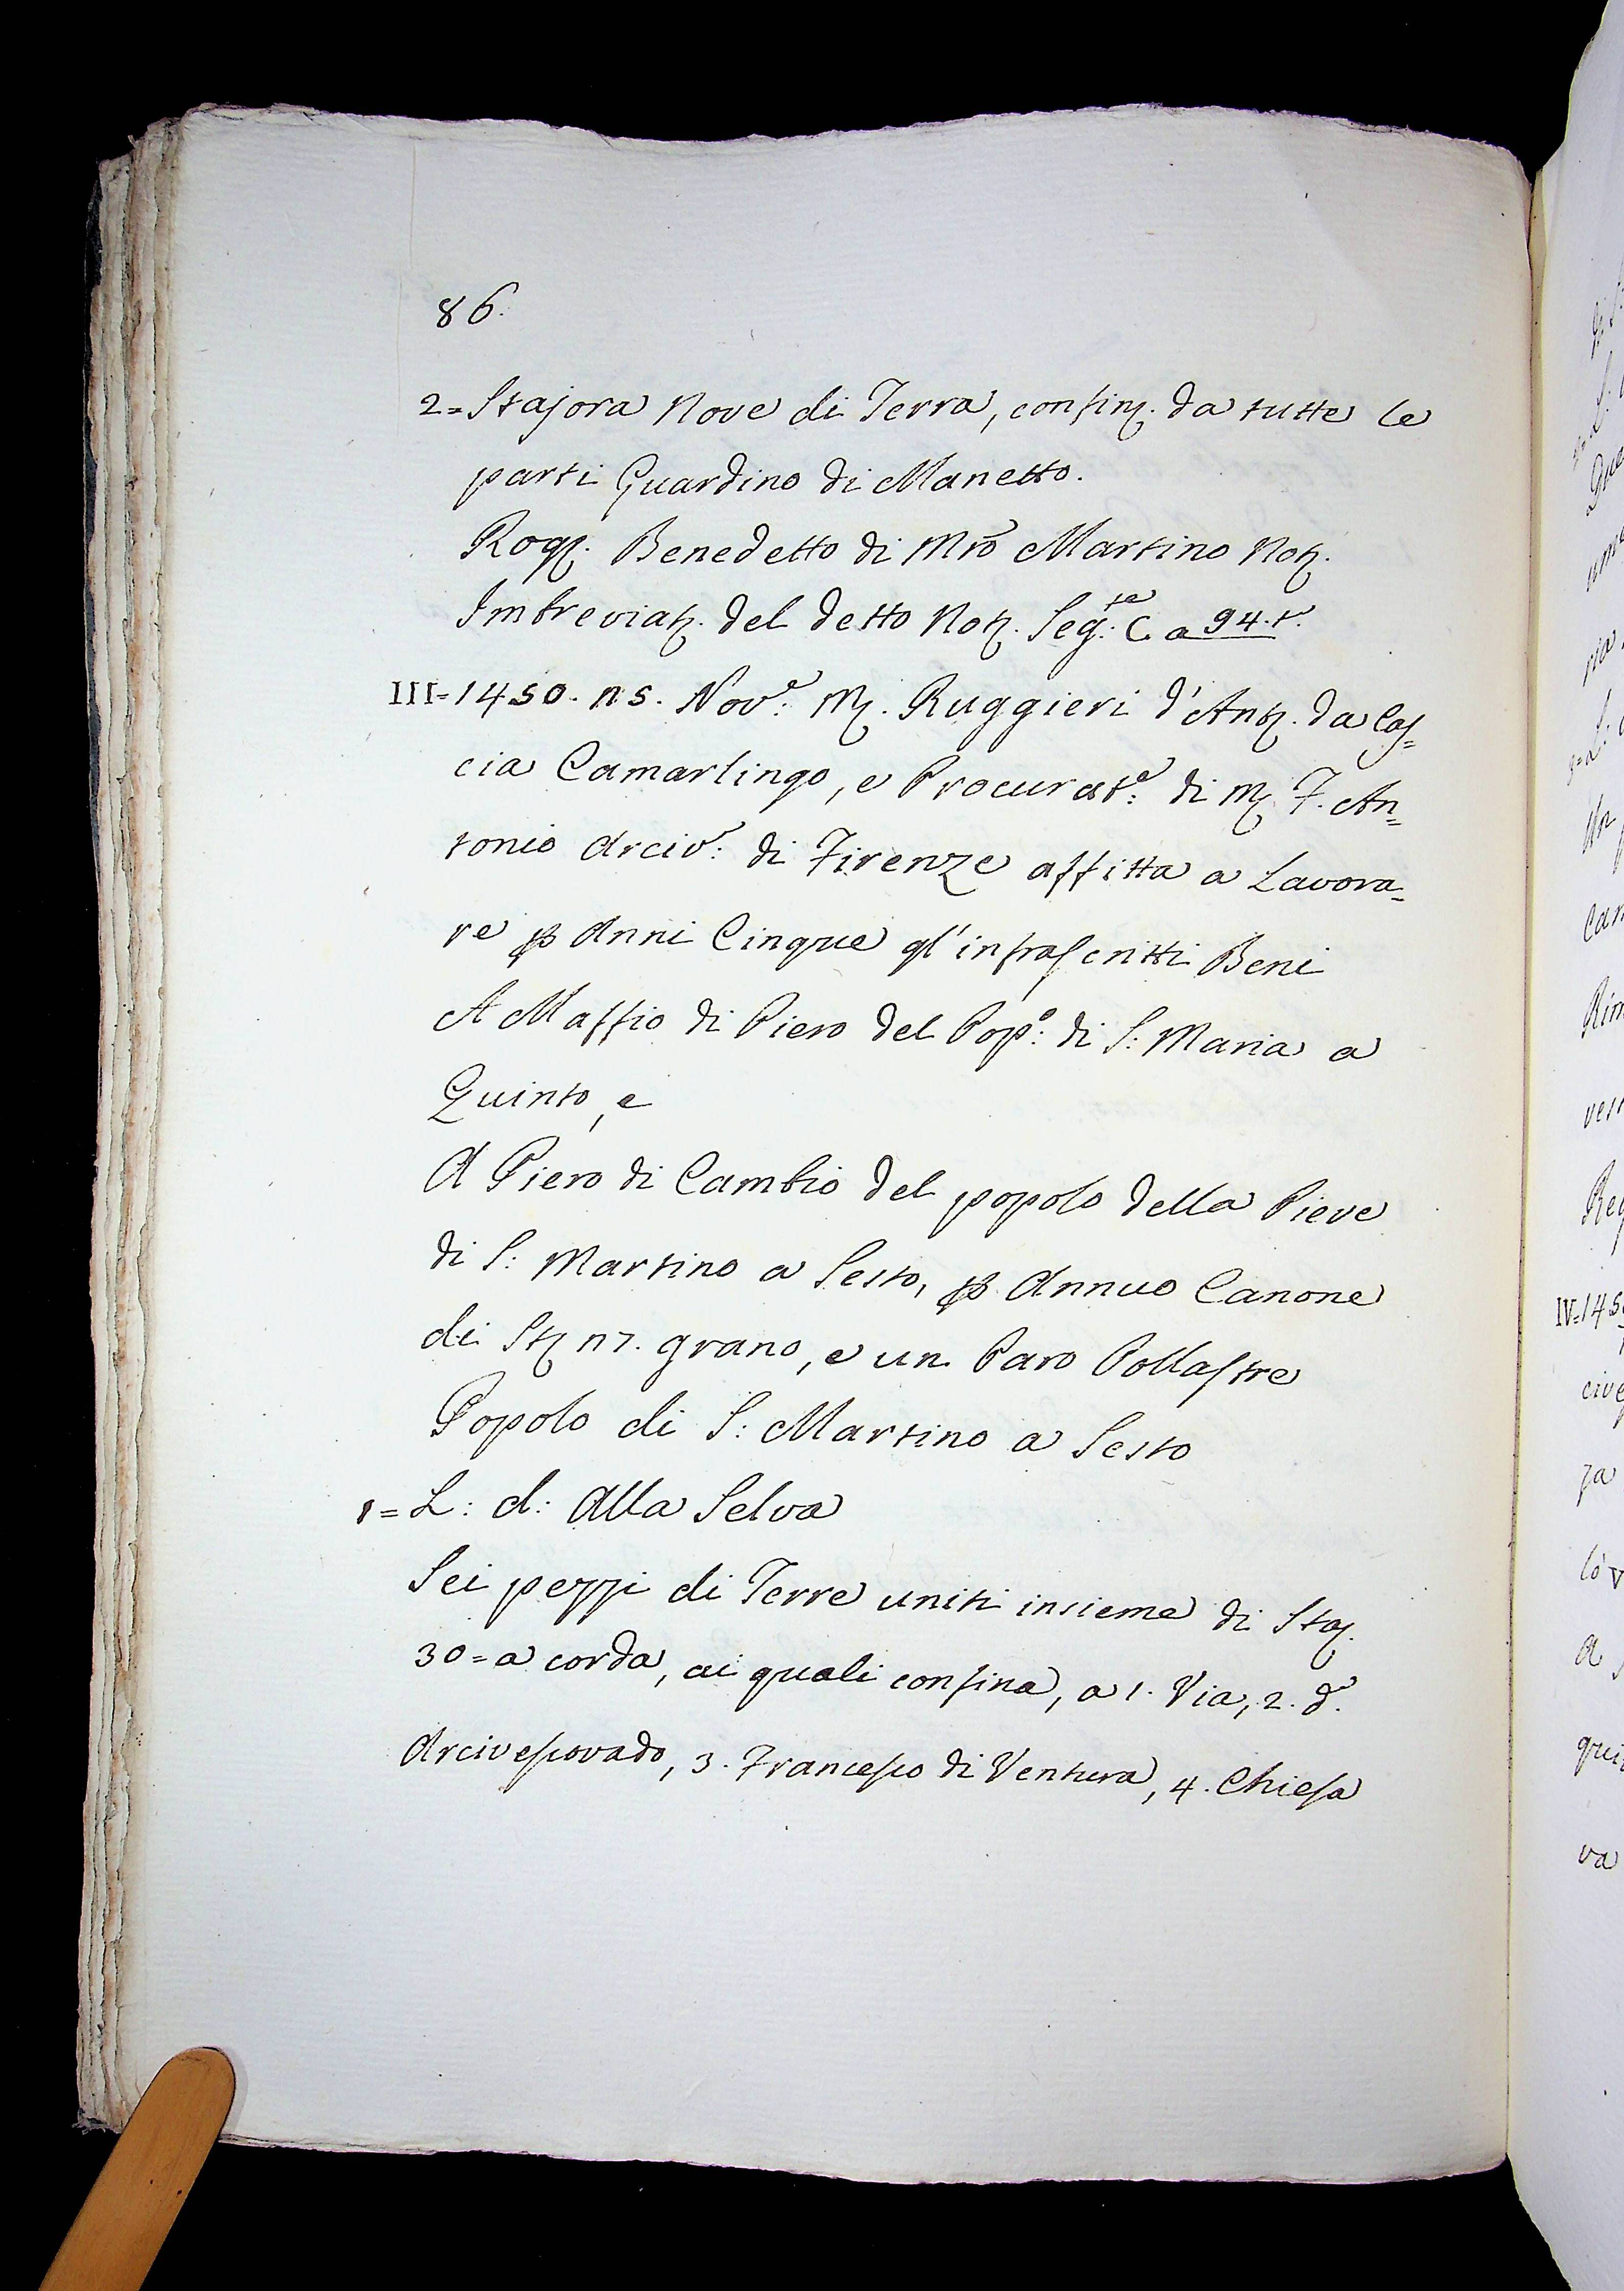 86.
2= Stajora Nove di Terra, confinz. da tutte le
parti Guardino di Manetto.
Rogz. Benedetto di Mrõ Martino Notz.
Imbreviatz. del detto Notz. Seg:te C. a 94.t.º
III= 1450. ns. Nov:e Mz. Ruggieri d'Antz. da Cas=
cia Camarlingo, e Procurat:e di Mz F. An=
tonio Arciv:o di Firenze affitta a Lavora=
re p Anni Cinque gl'infrascritti Beni
A Maffio di Piero del Pop:o di S: Maria a
Quinto, e
A Piero di Cambio del popolo della Pieve
di S: Martino a Sesto, p Annuo Canone
di Stz n7. grano, e un Paro Pollastre
Popolo di S: Martino a Sesto
1= L: d: Alla Selva
Sei pezzi di Terre uniti insieme di Staz.
30= a corda, ai quali confina, a 1. Via, 2. d.º
Arcivescovado, 3. Francesco di Ventura, 4. Chiesa